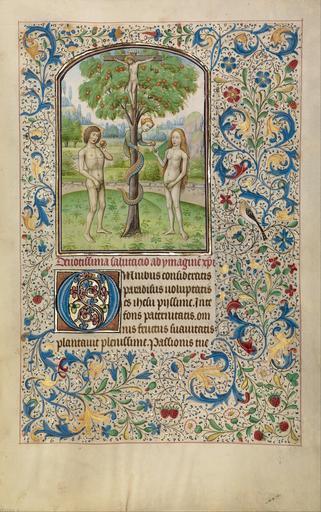 Deuotissima salutacio ad ymaginē xp̄i
Omnibus consideratis
paradisus voluptatis
es ihesu pijssime. Inte
fons paternitatis. om
nis fructus suauitatis
plantaut plenissime. Passionis tue